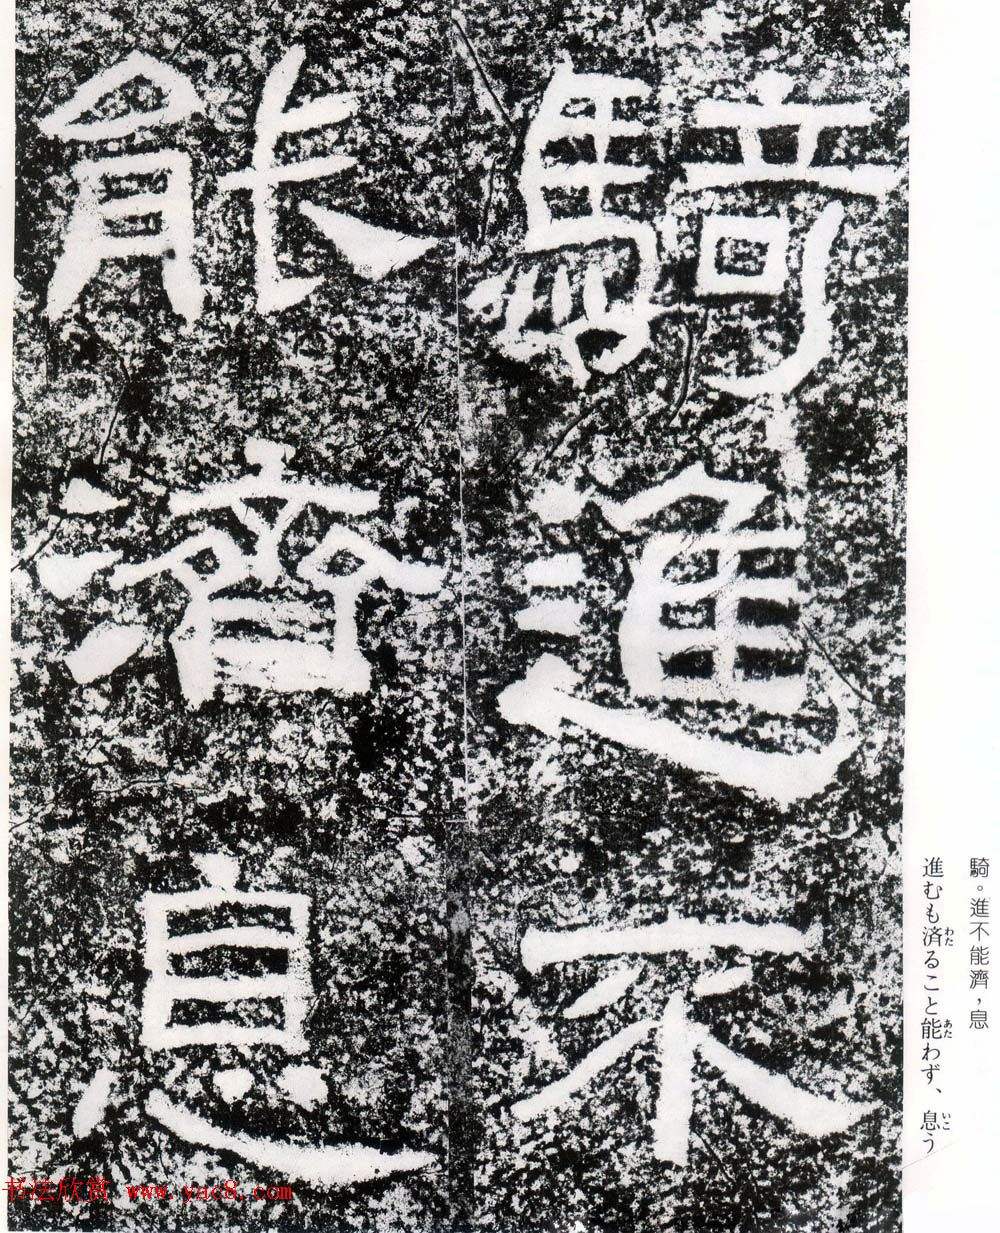 騎進不
能濟息
騎。進不能濟，息
進むも済ることと能わず、息う
わた
あた
いこ
书法欣赏 www.yac8.com